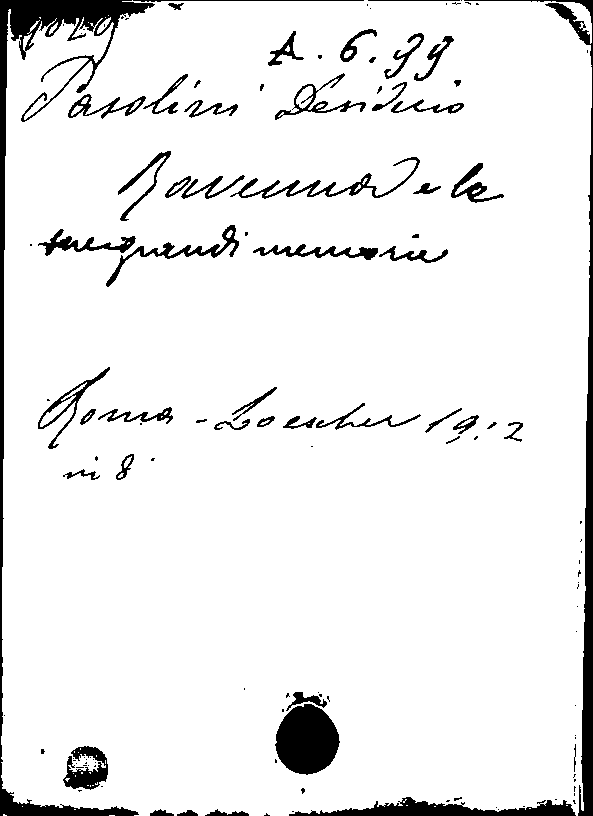 1029
A. 6. 99
Pasolini Desiderio
Ravenna e le
sue grandi memorie
Roma - Loescher 1912
in 8°